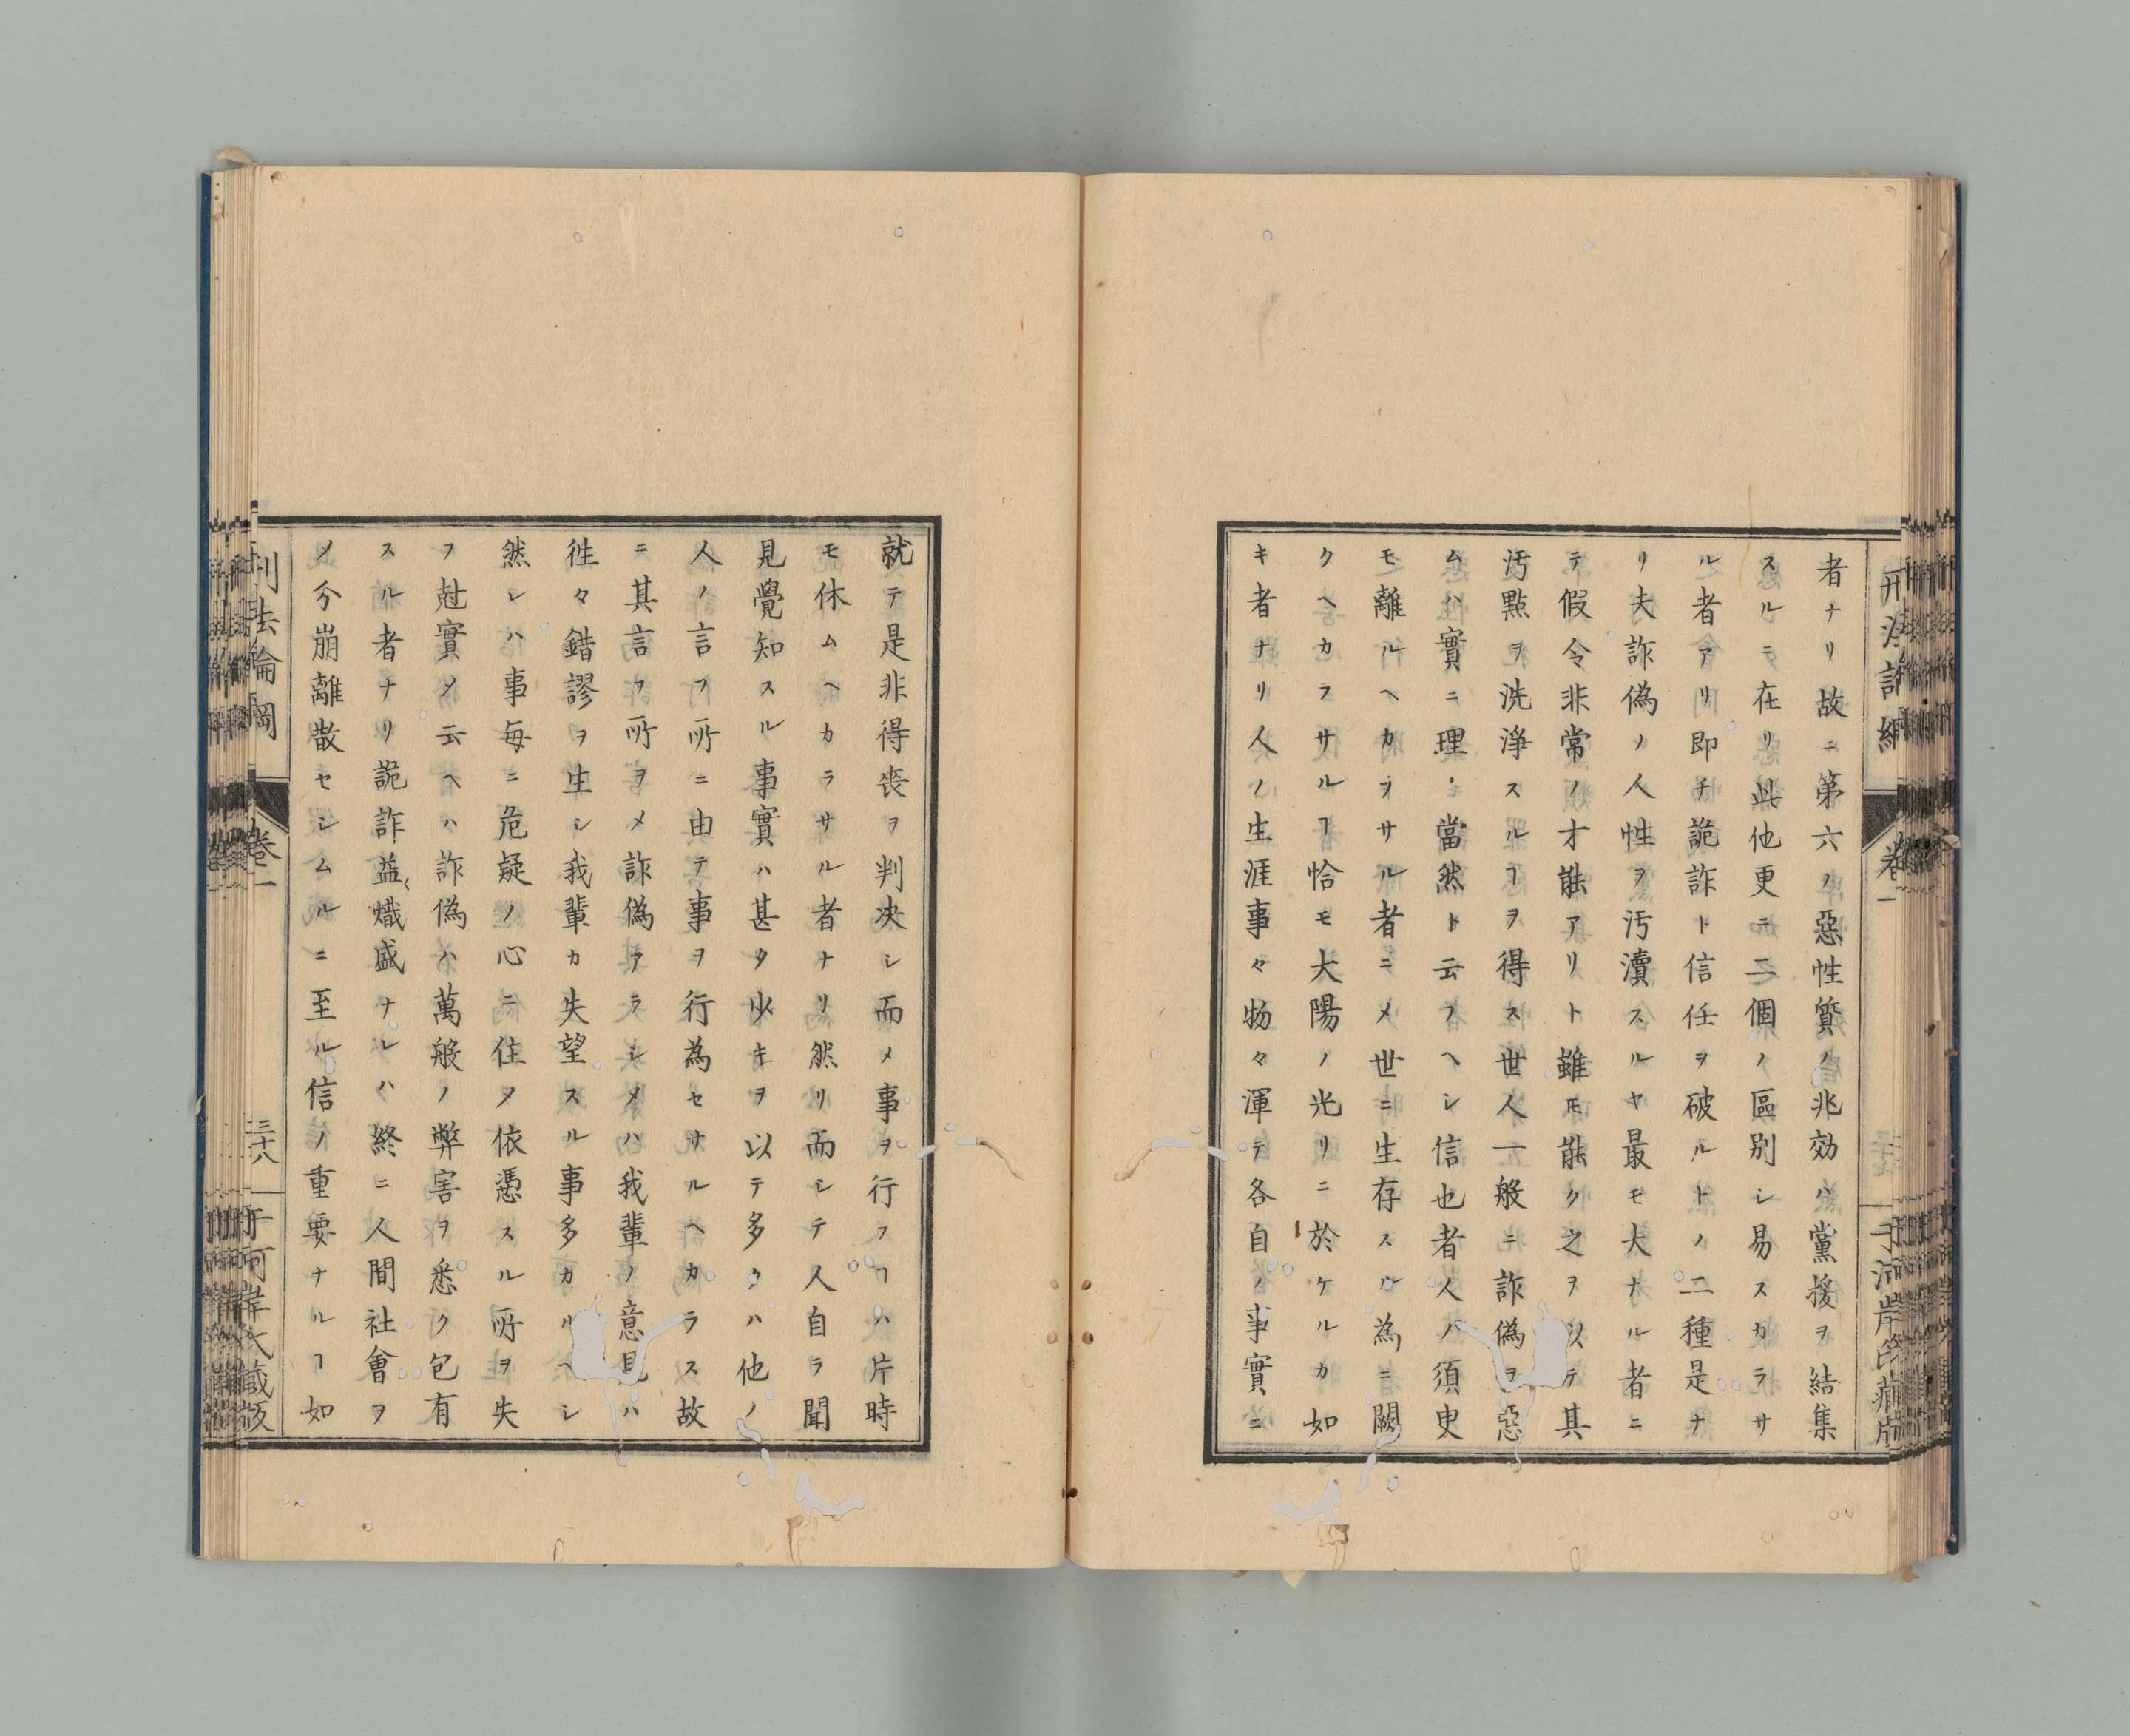 者ナリ故ニ第六ノ惡性質ノ兆効ハ黨援ヲ結集
スルニ在リ此他更ニ二個ノ區別シ易スカラサ
ル者アリ即チ詭詐ト信任ヲ破ルトノ二種是ナ
リ夫詐偽ノ人性ヲ汚瀆スルヤ最モ大ナル者ニ
テ假令非常ノ才能アリト雖モ能ク之ヲ以テ其
汚點ヲ洗淨スルヿヲ得ス世人一般ニ詐偽ヲ惡
ムハ實ニ理ノ當然ト云フヘシ信也者人ノ須臾
モ離ルヘカヲサル者ニメ世ニ生存スル為ニ闕
クヘカラサルヿ恰モ大陽ノ光リニ於ケルカ如
キ者ナリ人ノ生涯事々物々渾テ各自ノ事實ニ
卷一
就テ是非得喪ヲ判决シ而メ事ヲ行フヿハ片時
モ休ムヘカラサル者ナリ然リ而シテ人自ラ聞
見覺知スル事實ハ甚タ少キヲ以テ多クハ他ノ
人ノ言フ所ニ由テ事ヲ行為セサルヘカラス故
ニ其言フ所ヲメ詐偽アラシメハ我輩ノ意見ハ
徃々錯謬ヲ生シ我輩カ失望スル事多カルヘシ
然レハ事毎ニ危疑ノ心ニ住タ依憑スル所ヲ失
フ尅實メ云ヘハ詐偽ハ萬般ノ弊害ヲ悉ク包有
スル者ナリ詭詐益〱熾盛ナレハ終ニ人間社會ヲ
メ分崩離散セシムルニ至ル信ノ重要ナルヿ如
刑法論綱
卷一
三十八